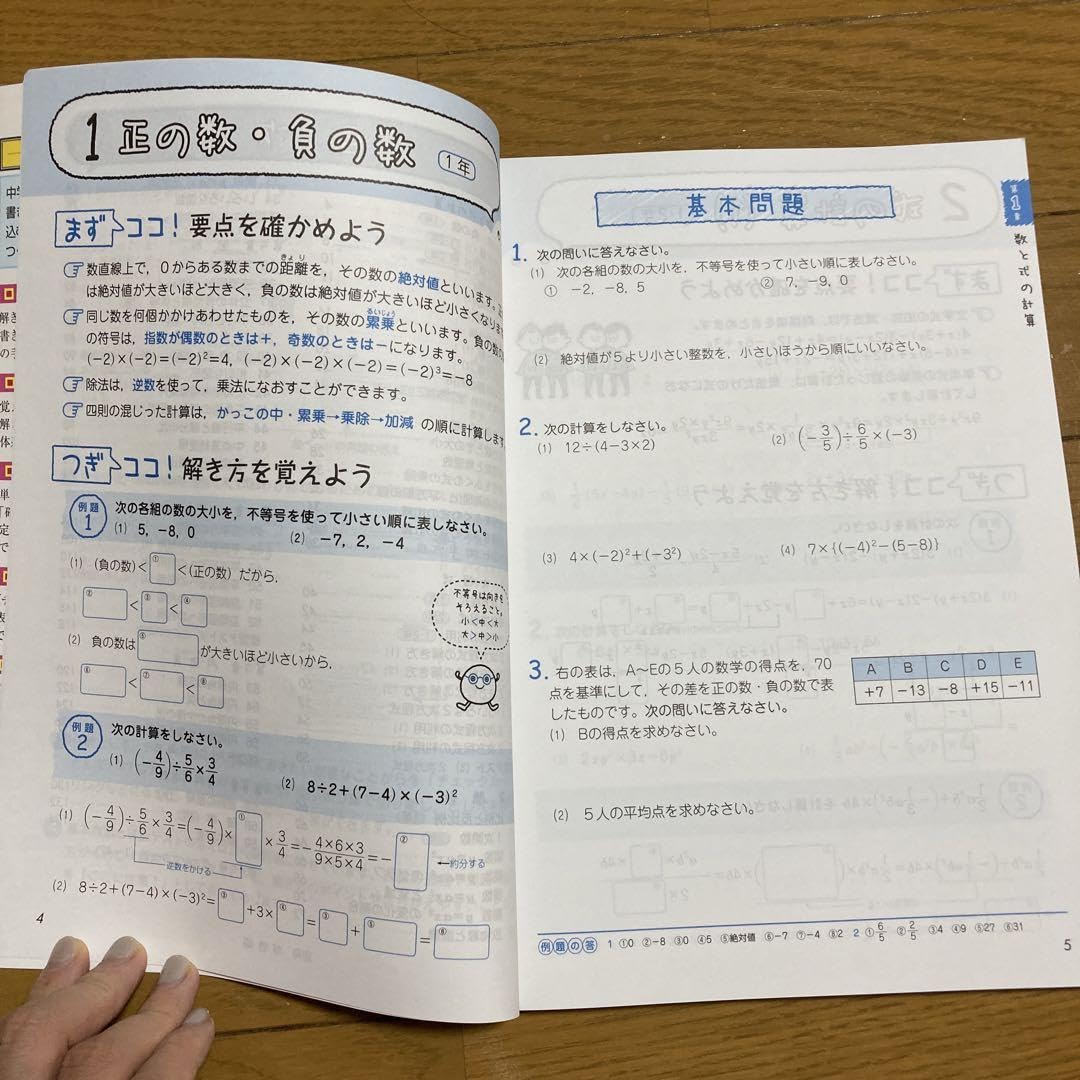 1 正の数・負の数 1年
まず ココ！ 要点を確かめよう
数直線上で，0からある数までの距離を，その数の絶対値といいます。
きょり
は絶対値が大きいほど大きく，負の数は絶対値が大きいほど小さくなりま
同じ数を何個かかけあわせたものを，その数の累乗といいます。負の数の
るいじょう
の符号は，指数が偶数のときは＋，奇数のときは－になります。
(−2)×(−2)=(−2)²=4, (−2)×(−2)×(−2)=(−2)³=−8
除法は，逆数を使って，乗法になおすことができます。
四則の混じった計算は，かっこの中・累乗→乗除→加減 の順に計算します
つぎ ココ！ 解き方を覚えよう
例題 1 次の各組の数の大小を，不等号を使って小さい順に表しなさい。
(1) 5, −8, 0 (2) −7, 2, −4
(1) (負の数)< ① <(正の数) だから，
② < ③ < ④
不等号は向きを
そろえること。
小<中<大
大>中>小
(2) 負の数は ⑤ が大きいほど小さいから，
⑥ < ⑦ < ⑧
例題 2 次の計算をしなさい。
(1) (−4/9)÷5/6×3/4 (2) 8÷2+(7−4)×(−3)²
(1) (−4/9)÷5/6×3/4=(−4/9)× ① ×3/4=−4×6×3/9×5×4=− ② ←約分する
逆数をかける
(2) 8÷2+(7−4)×(−3)²= ③ +3× ④ = ③ + ⑤ = ⑥
4
基本問題
第1章 数と式の計算
1. 次の問いに答えなさい。
(1) 次の各組の数の大小を，不等号を使って小さい順に表しなさい。
① −2, −8, 5 ② 7, −9, 0
(2) 絶対値が5より小さい整数を，小さいほうから順にいいなさい。
2. 次の計算をしなさい。
(1) 12÷(4−3×2) (2) (−3/5)÷6/5×(−3)
(3) 4×(−2)²+(−3²) (4) 7×{(−4)²−(5−8)}
3. 右の表は，A〜Eの5人の数学の得点を，70
点を基準にして，その差を正の数・負の数で表
したものです。次の問いに答えなさい。
A B C D E
+7 −13 −8 +15 −11
(1) Bの得点を求めなさい。
(2) 5人の平均点を求めなさい。
例題の答 1 ①0 ②−8 ③0 ④5 ⑤絶対値 ⑥−7 ⑦−4 ⑧2 2 ①6/5 ②2/5 ③4 ④9 ⑤27 ⑥31
5